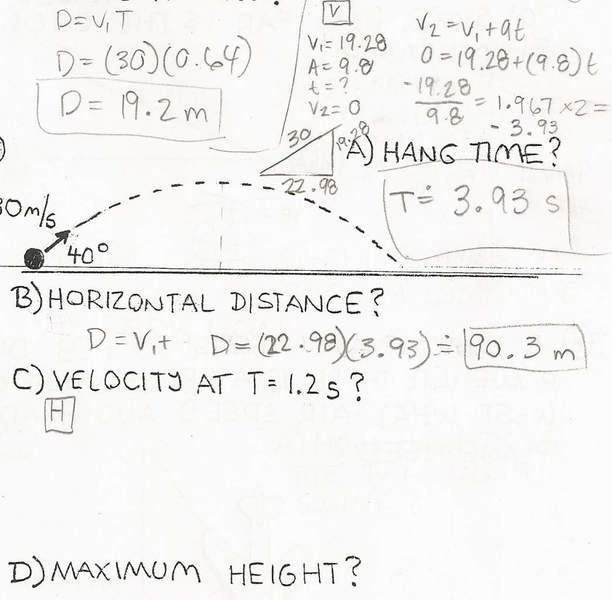 D=V₁T
D=(30)(0.64)
D= 19.2 m
V
V₁= 19.28
A= 9.8
t = ?
V₂= 0
V₂=V₁+at
0=19.28+(9.8)t
-19.28
9.8
= 1.967 x2=
- 3.93
A) HANG TIME?
T≐ 3.93 s
30
19.28
22.98
30m/s
40°
B) HORIZONTAL DISTANCE?
D=V₁t D=(22.98)(3.93)≐ 90.3 m
C) VELOCITY AT T= 1.2s?
H
D) MAXIMUM HEIGHT?